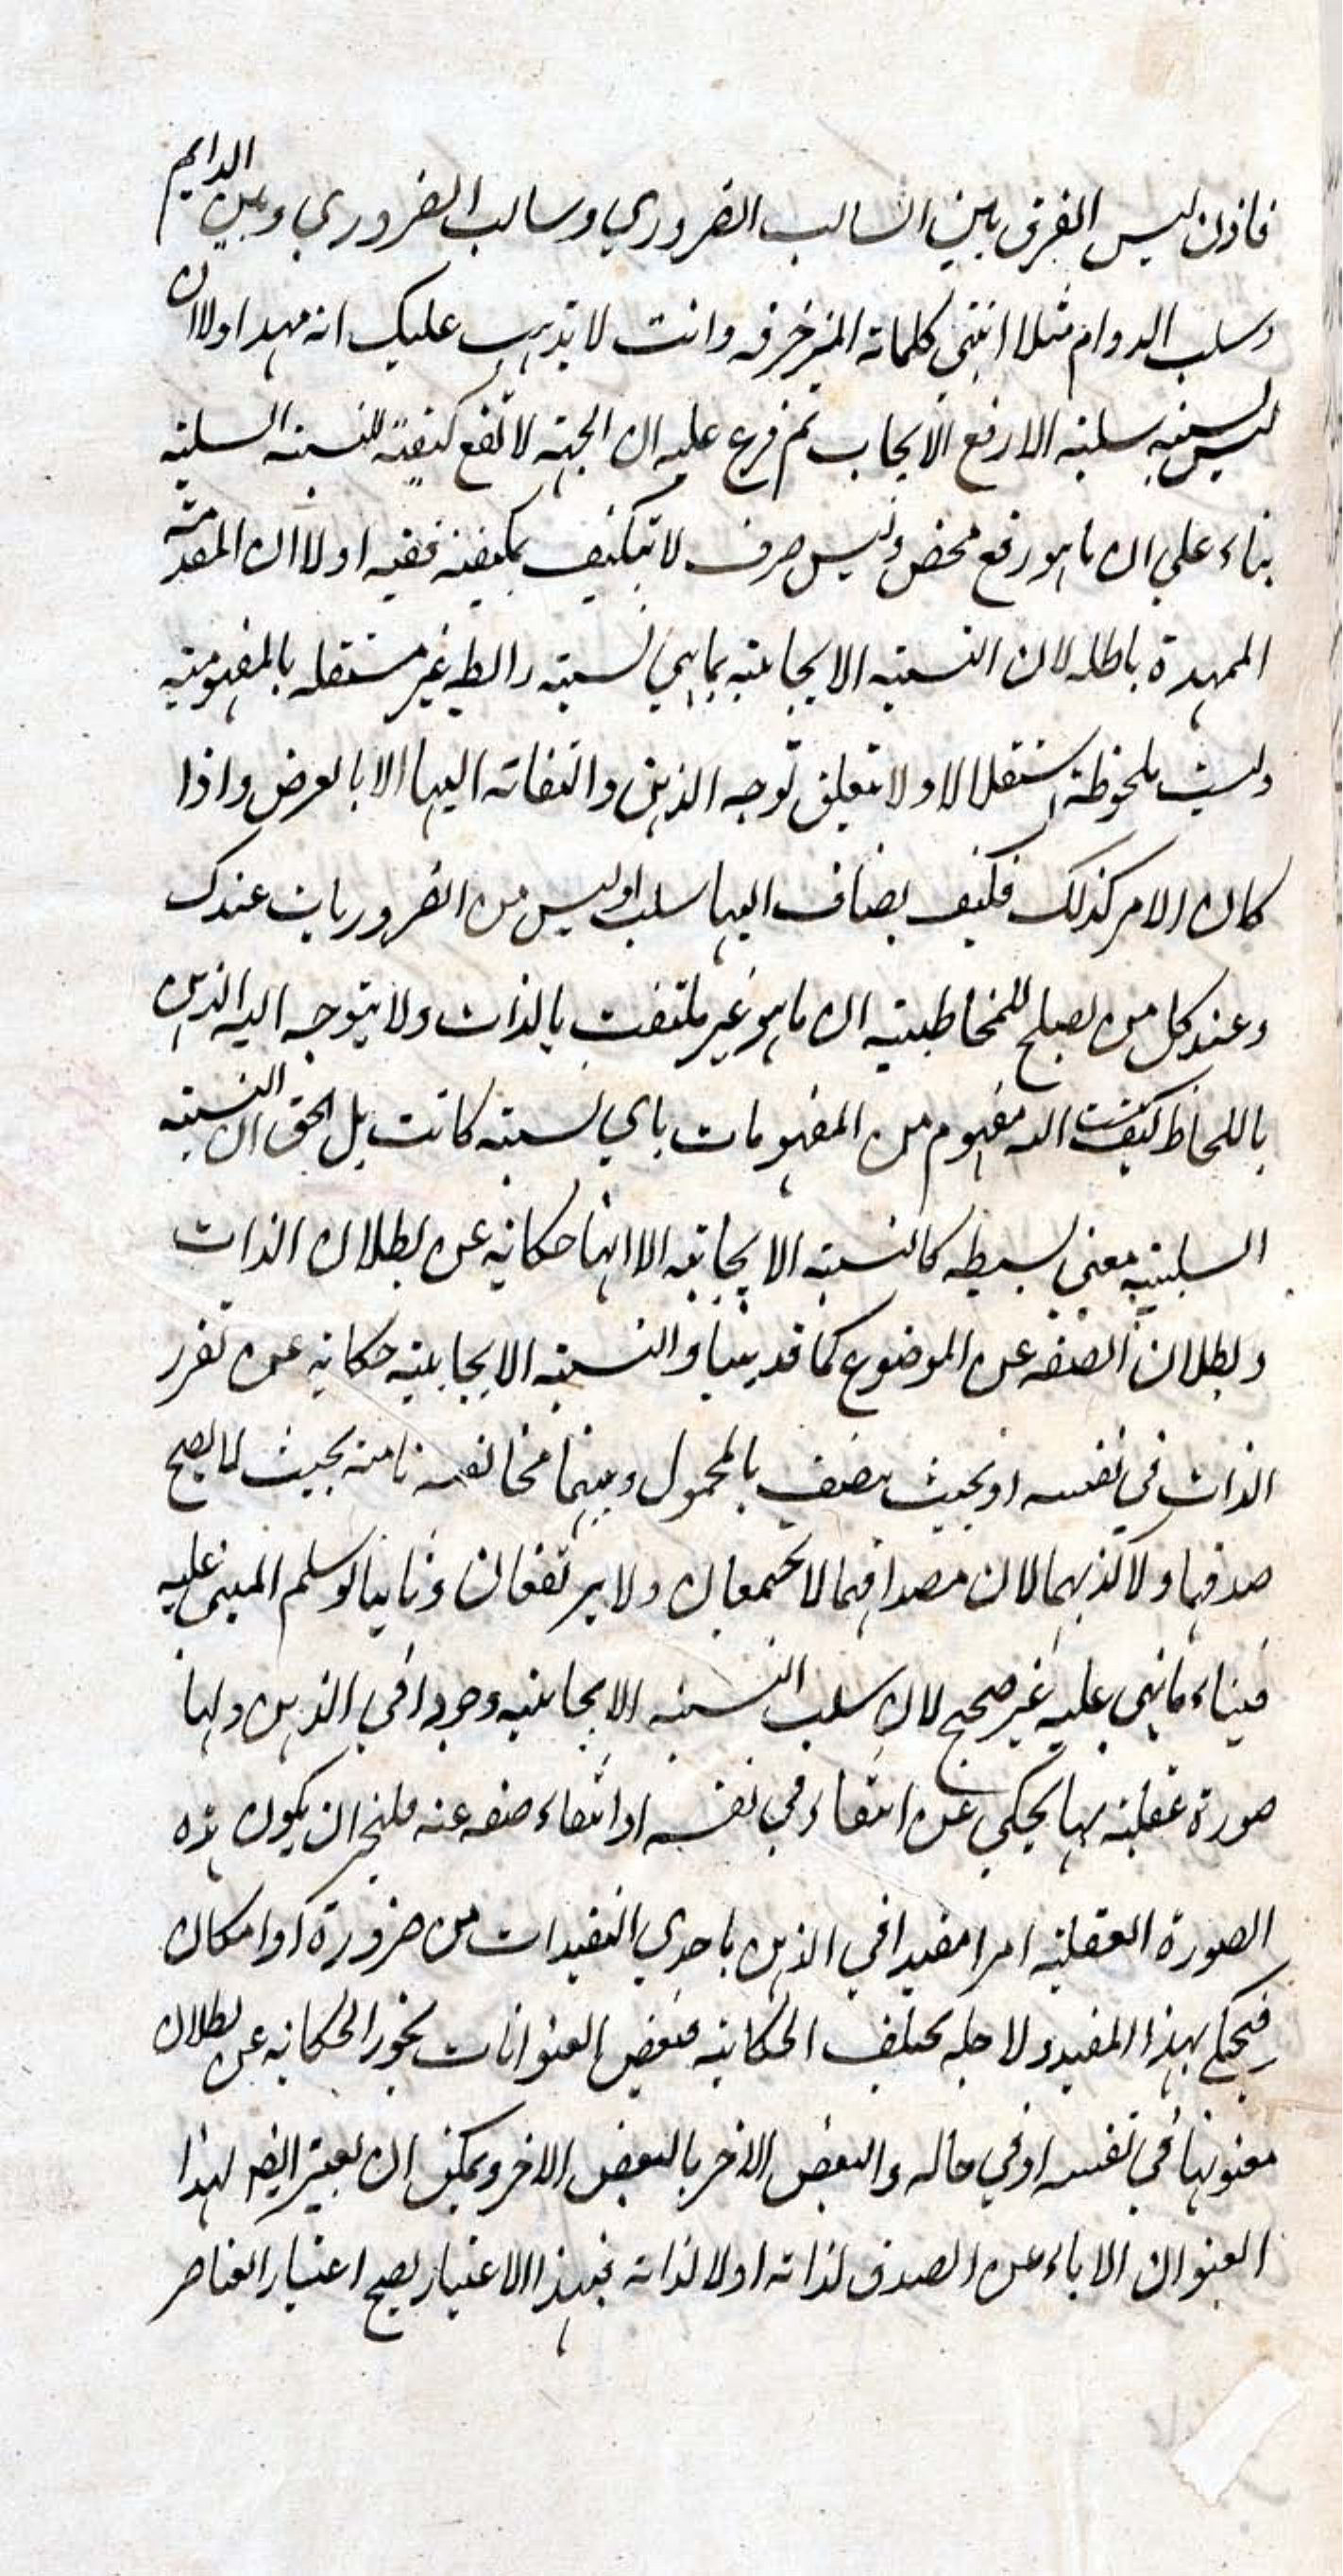 فاذن ليس الفرق بين السالب الضروري وسالب الضروري وبين الدايم
وسلب الدوام مثلا انتهي كلماته المزخرفه وانت لا تذهب عليك انه مهد اولا ان
ليس نسبة سلبية الا رفع الايجاب ثم فرع عليه ان الجهة لا تقع كيفية للنسبة السلبية
بناء علي ان ما هو رفع محض وليس صرف لا تتكيف بكيفية ففيه اولا ان المقدمة
الممهدة باطله لان النسبة الايجابية بما هي نسبة رابطة غير مستقله بالمفهومية
وليست ملحوظة استقلالا ولا تتعلق توجه الذهن والتفاته اليها الا بالعرض واذا
كان الامر كذلك فكيف يضاف اليها سلب او ليس من الضروريات عندك
وعند كل من يصلح للمخاطبية ان ما هو غير ملتفت بالذات ولا يتوجه اليه الذهن
باللحاظ كيف ينسب اليه مفهوم من المفهومات باي نسبة كانت بل الحق ان النسبة
السلبية معني بسيطه كالنسبة الايجابية الا انها حكاية عن بطلان الذات
وبطلان الصفه عن الموضوع كما قد بينا والنسبة الايجابية حكاية عن تقرر
الذات في نفسه او بحيث يتصف بالمحمول وبينهما مخالفه تامة بحيث لا يصح
صدقهما ولا كذبهما لان مصداقهما لا يجتمعان ولا يرتفعان وثانيا لو سلم المبني عليه
فبناء ما بني عليه غير صحيح لان سلب النسبة الايجابية وجودا في الذهن ولها
صورة عقلية بها يحكي عن انتفاء في نفسه او انتفاء صفه عنه فليجز ان يكون هذه
الصورة العقلية امرا مقيدا في الذهن باحدي التقييدات من ضرورة او امكان
فيحكم بهذا المقيد ولاجله يختلف الحكاية فبعض العنوانات يجوز الحكاية عن بطلان
معنونها في نفسه او في حاله والبعض الاخر بالبعض الاخر ويمكن ان يعتبر ايضا لهذا
العنوان الاباء عن الصدق لذاته او لا لذاته فبهذا الاعتبار يصح اعتبار العناصر